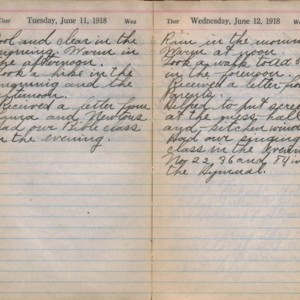 Tuesday, June 11, 1918
ool and clear in the
morning. Warm in
the afternoon.
Took a hike in the
morning and the
afternoon.
Received a letter from
and
Had our Bible class
in the evening.
Wednesday, June 12, 1918
Rain in the morning
Warm at noon.
Took a walk to
in the forenoon.
Received a letter from
Parents.
Helped to put scree
at the mess hall
and kitchen windo
Had our singing
class in the Even
No 22, 36 and 84 in
the Hymnal.